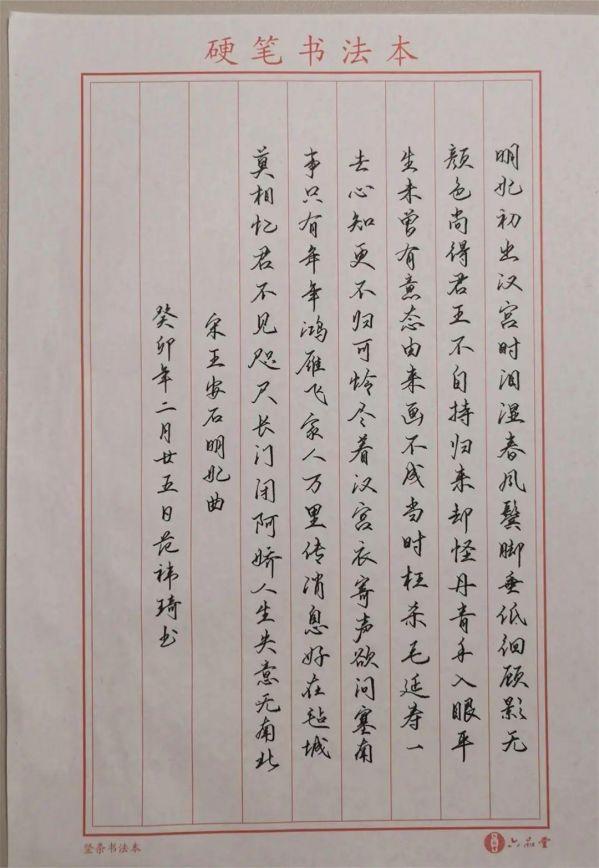 硬笔书法本
明妃初出汉宫时泪湿春风鬓脚垂低徊顾影无
颜色尚得君王不自持归来却怪丹青手入眼平
生未曾有意态由来画不成当时枉杀毛延寿一
去心知更不归可怜尽着汉宫衣寄声欲问塞南
事只有年年鸿雁飞家人万里传消息好在毡城
莫相忆君不见咫尺长门闭阿娇人生失意无南北
宋王安石明妃曲
癸卯年二月廿五日范祎琦书
竖条书法本
六品堂